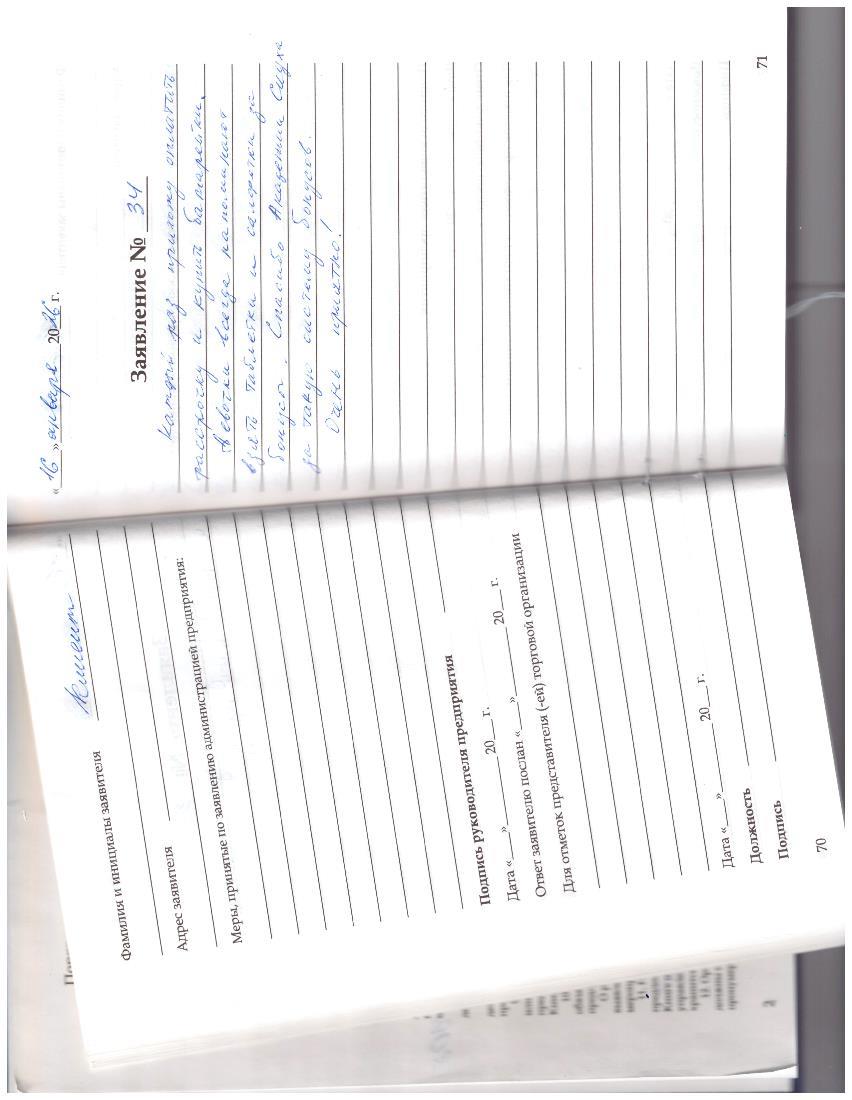 Фамилия и инициалы заявителя Клиент
Адрес заявителя
Меры, принятые по заявлению администрацией предприятия:
Подпись руководителя предприятия
Дата «___» ______ 20__ г.
Ответ заявителю послан «___» ______ 20__ г.
Для отметок представителя (-ей) торговой организации
Дата «___» ______ 20__ г.
Должность
Подпись
70
«16» января 2026 г.
Заявление № 34
Каждый раз прихожу оплатить
рассрочку и купить батарейки.
Девочки всегда напоминают
взять таблетки и салфетки за
бонусы. Спасибо Академии Слуха
за такую систему бонусов.
Очень приятно!
71
2